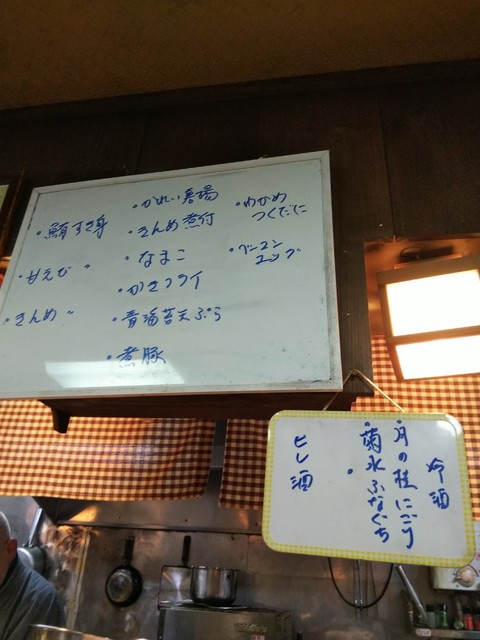 ・鮪すき身
・甘えび 〃
・きんめ 〃
・かれい唐揚
・きんめ煮付
・なまこ
・かきフライ
・青海苔天ぷら
・煮豚
・わかめ
つくだに
・ベーコン
エッグ
冷酒
・月の桂にごり
・菊水ふなぐち
ヒレ酒